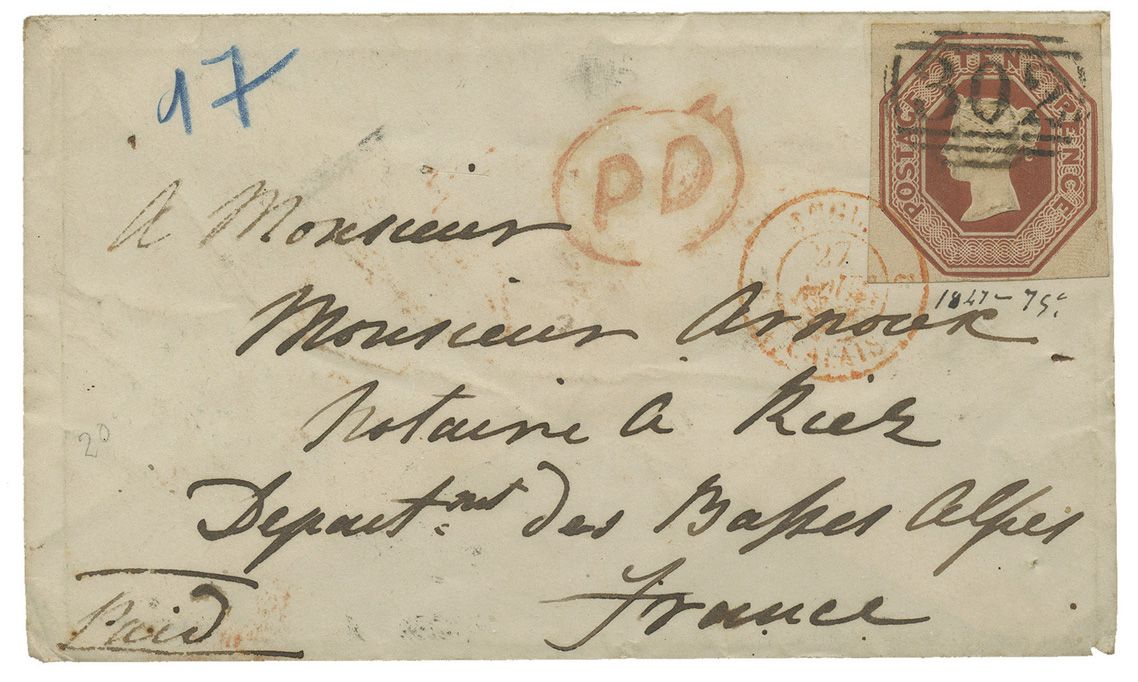 17
PD
POSTAGE TEN PENCE
302
27
CALAIS
1847 - 75c
A Monsieur
Monsieur Arnoux
Notaire a Riez
Departmt des Basses Alpes
France
Paid
20